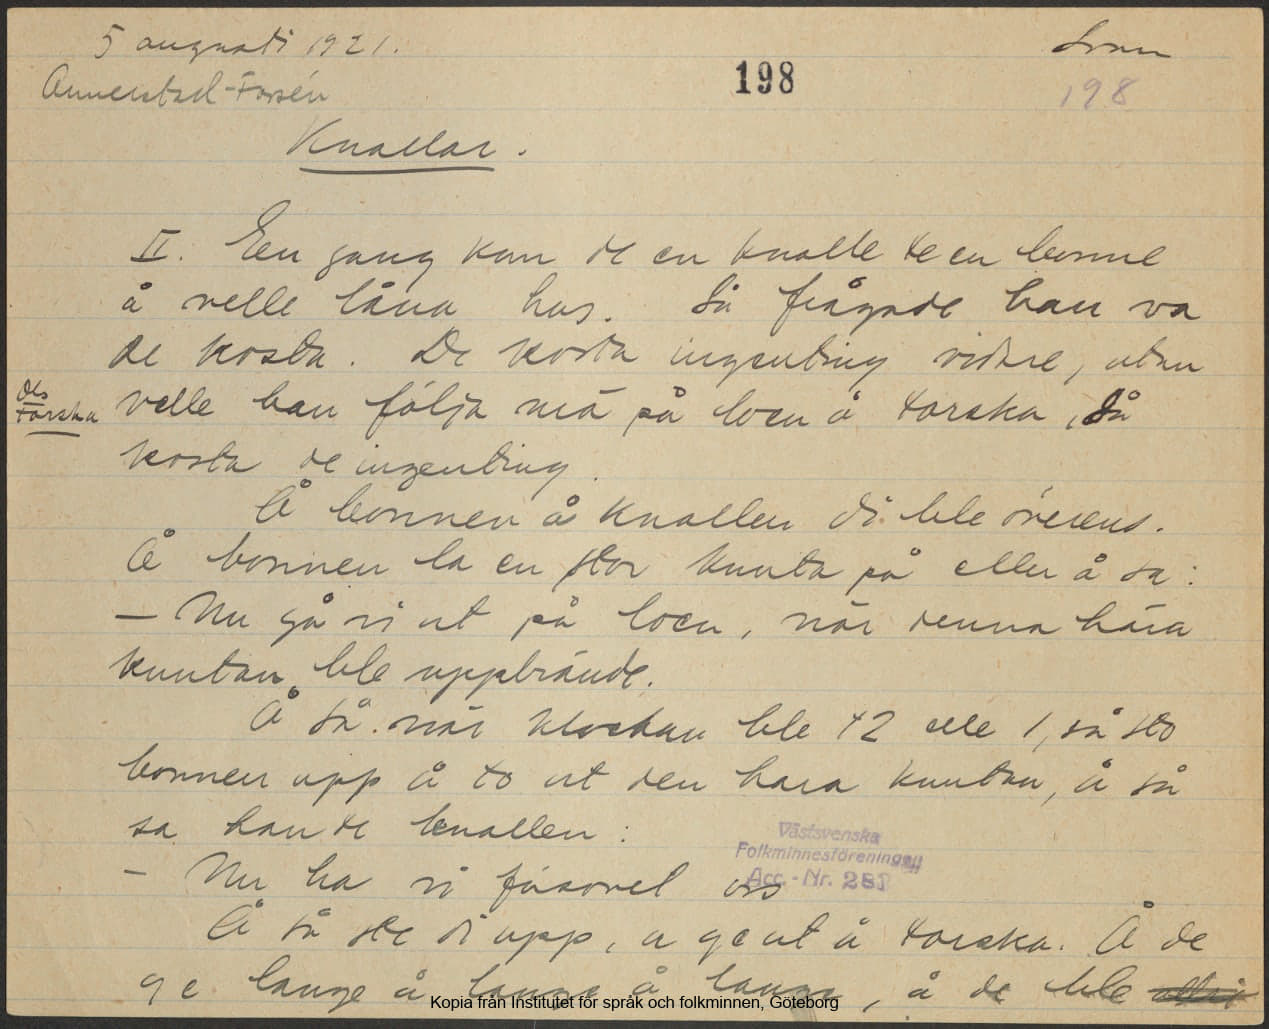 5 augusti 1921.
Annerstad-Forsén
198
198
Knallar.
II. Een gang kom de en knalle te en bonne
å velle låna hus. Så frågade han va
de kosta. De kosta ingenting vidare, utan
velle han följa mä på loen å torska, så
torska
kosta de ingenting.
Å bonnen å knallen di ble överens.
Å bonnen la en stor kunta på ellen å sa:
– Nu gå vi ut på loen, när denna hära
kuntan ble uppbrände.
Å så när klockan ble 12 elle 1, så sto
bonnen upp å to ut den hara kuntan, å så
sa han te knallen:
Västsvenska
Folkminnesföreningen
Acc.-Nr. 28
– Nu ha vi försovet oss
Å så ste di upp, å ge ut å torska. Å de
ge lange å lange å lange, å de ble
Kopia från Institutet för språk och folkminnen, Göteborg